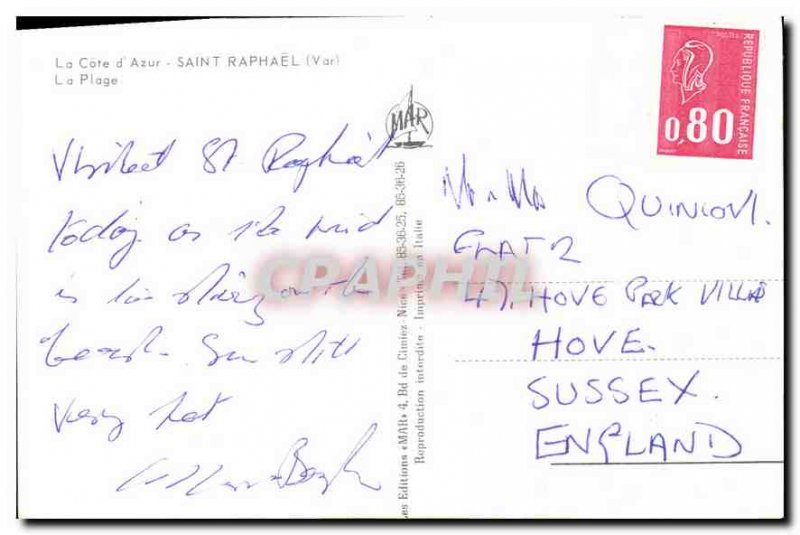 La Côte d'Azur - SAINT RAPHAËL (Var)
La Plage
Visited St Raphael
today as the wind
is too strong on the
beach. Sun still
very hot
MAR
Les Editions «MAR» 4, Bd de Cimiez - Nice - Tél. 85-36-25, 85-36-26
Reproduction interdite - Imprimé en Italie
REPUBLIQUE FRANÇAISE
0,80
Mr & Mrs QUINION.
FLAT 2
47, HOVE PARK VILLAS
HOVE.
SUSSEX.
ENGLAND
CPAPHIL